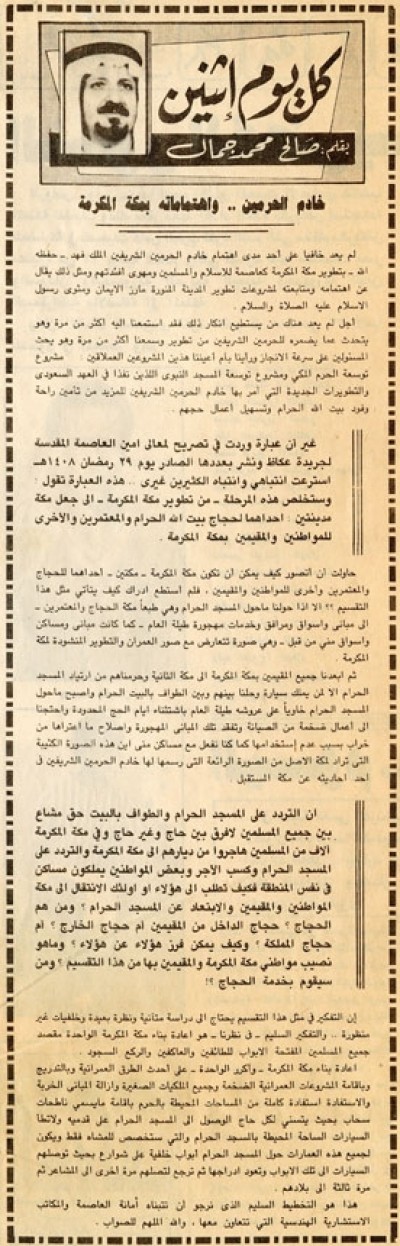 كل يوم إثنين
بقلم: صالح محمد جمال
خادم الحرمين .. واهتماماته بمكة المكرمة
لم يعد خافيا على أحد مدى اهتمام خادم الحرمين الشريفين الملك فهد ـ حفظه
الله ـ بتطوير مكة المكرمة كعاصمة للاسلام والمسلمين ومهوى أفئدتهم ومثل ذلك يقال
عن اهتمامه ومتابعته لمشروعات تطوير المدينة المنورة مأرز الايمان ومثوى رسول
الاسلام عليه الصلاة والسلام .
أجل لم يعد هناك من يستطيع انكار ذلك فقد استمعنا اليه أكثر من مرة وهو
يتحدث عما يضمره للحرمين الشريفين من تطوير وسمعنا أكثر من مرة وهو يحث
المسئولين على سرعة الانجاز ورأينا بأم أعيننا هذين المشروعين العملاقين : مشروع
توسعة الحرم المكي ومشروع توسعة المسجد النبوى اللذين نفذا في العهد السعودى
والتطويرات الجديدة التي أمر بها خادم الحرمين الشريفين للمزيد من تأمين راحة
وفود بيت الله الحرام وتسهيل أعمال حجهم .
غير ان عبارة وردت في تصريح لمعالي امين العاصمة المقدسة
لجريدة عكاظ ونشر بعددها الصادر يوم ٢٩ رمضان ١٤٠٨هـ
استرعت انتباهي وانتباه الكثيرين غيرى .. هذه العبارة تقول :
وستخلص هذه المرحلة ـ من تطوير مكة المكرمة ـ الى جعل مكة
مدينتين : احداهما لحجاج بيت الله الحرام والمعتمرين والأخرى
للمواطنين والمقيمين بمكة المكرمة .
حاولت أن أتصور كيف يمكن أن تكون مكة المكرمة ـ مكتين ـ أحداهما للحجاج
والمعتمرين وأخرى للمواطنين والمقيمين ، فلم أستطع ادراك كيف يتأتي مثل هذا
التقسيم ؟؟ الا اذا حولنا ماحول المسجد الحرام وهي طبعاً مكة الحجاج والمعتمرين ـ
الى مبانى وأسواق ومرافق وخدمات مهجورة طيلة العام ـ كما كانت مبانى ومساكن
وأسواق مني من قبل ـ وهي صورة تتعارض مع صور العمران والتطوير المنشودة لمكة
المكرمة .
ثم ابعدنا جميع المقيمين بمكة المكرمة الى مكة الثانية وحرمناهم من ارتياد المسجد
الحرام الا لمن يملك سيارة وحلنا بينهم وبين الطواف بالبيت الحرام وأصبح ماحول
المسجد الحرام خاوياً على عروشه طيلة العام باستثناء أيام الحج المحدودة واحتجنا
الى أعمال ضخمة من الصيانة وتفقد تلك المبانى المهجورة واصلاح ما اعتراها من
خراب بسبب عدم إستخدامها كما كنا نفعل مع مساكن منى اين هذه الصورة الكئيبة
التى تراد لمكة الاصل من الصورة الرائعة التى رسمها لها خادم الحرمين الشريفين في
أحد أحاديثه عن مكة المستقبل .
ان التردد على المسجد الحرام والطواف بالبيت حق مشاع
بين جميع المسلمين لافرق بين حاج وغير حاج وفي مكة المكرمة
آلاف من المسلمين هاجروا من ديارهم الى مكة المكرمة والتردد على
المسجد الحرام وكسب الأجر وبعض المواطنين يملكون مساكن
في نفس المنطقة فكيف تطلب الى هؤلاء او اولئك الانتقال الى مكة
المواطنين والمقيمين والابتعاد عن المسجد الحرام ؟ ومن هم
الحجاج ؟ حجاج الداخل من المقيمين أم حجاج الخارج ؟ أم
حجاج المملكة ؟ وكيف يمكن فرز هؤلاء عن هؤلاء ؟ وماهو
نصيب مواطني مكة المكرمة والمقيمين بها من هذا التقسيم ؟ ومن
سيقوم بخدمة الحجاج ؟!
إن التفكير في مثل هذا التقسيم يحتاج الى دراسة متأنية ونظرة بعيدة وخلفيات غير
منظورة .. والتفكير السليم ـ في نظرنا ـ هو اعادة بناء مكة المكرمة الواحدة مقصد
جميع المسلمين المفتحة الابواب للطائفين والعاكفين والركع السجود .
اعادة بناء مكة المكرمة ـ وأكرر الواحدة ـ على أحدث الطرق العمرانية وبالتدريج
وباقامة المشروعات العمرانية الضخمة وجميع الملكيات الصغيرة وازالة المبانى الخربة
والاستفادة استفادة كاملة من المساحات المحيطة بالحرم باقامة مايسمي ناطحات
سحاب بحيث يتسني لكل حاج الوصول الى المسجد الحرام على قدميه ولاتطأ
السيارات الساحة المحيطة بالمسجد الحرام والتي ستخصص للمشاه فقط ويكون
لجميع هذه العمارات حول المسجد الحرام أبواب خلفية على شوارع بحيث توصلهم
السيارات الى تلك الأبواب وتعود ادراجها ثم ترجع لتصلهم مرة أخرى الى المشاعر ثم
مرة ثالثة الى بلادهم .
هذا هو التخطيط السليم الذى نرجو أن تتبناه أمانة العاصمة والمكاتب
الاستشارية الهندسية التي تتعاون معها ، والله الملهم للصواب .